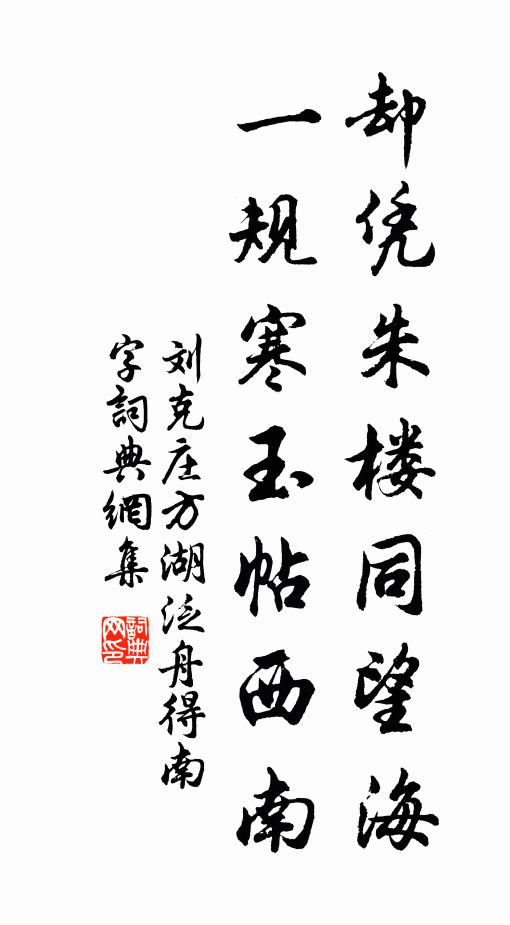 却凭朱楼同望海
一规寒玉帖西南
刘克庄方湖泛舟得南
字詞典網集
詞典网印